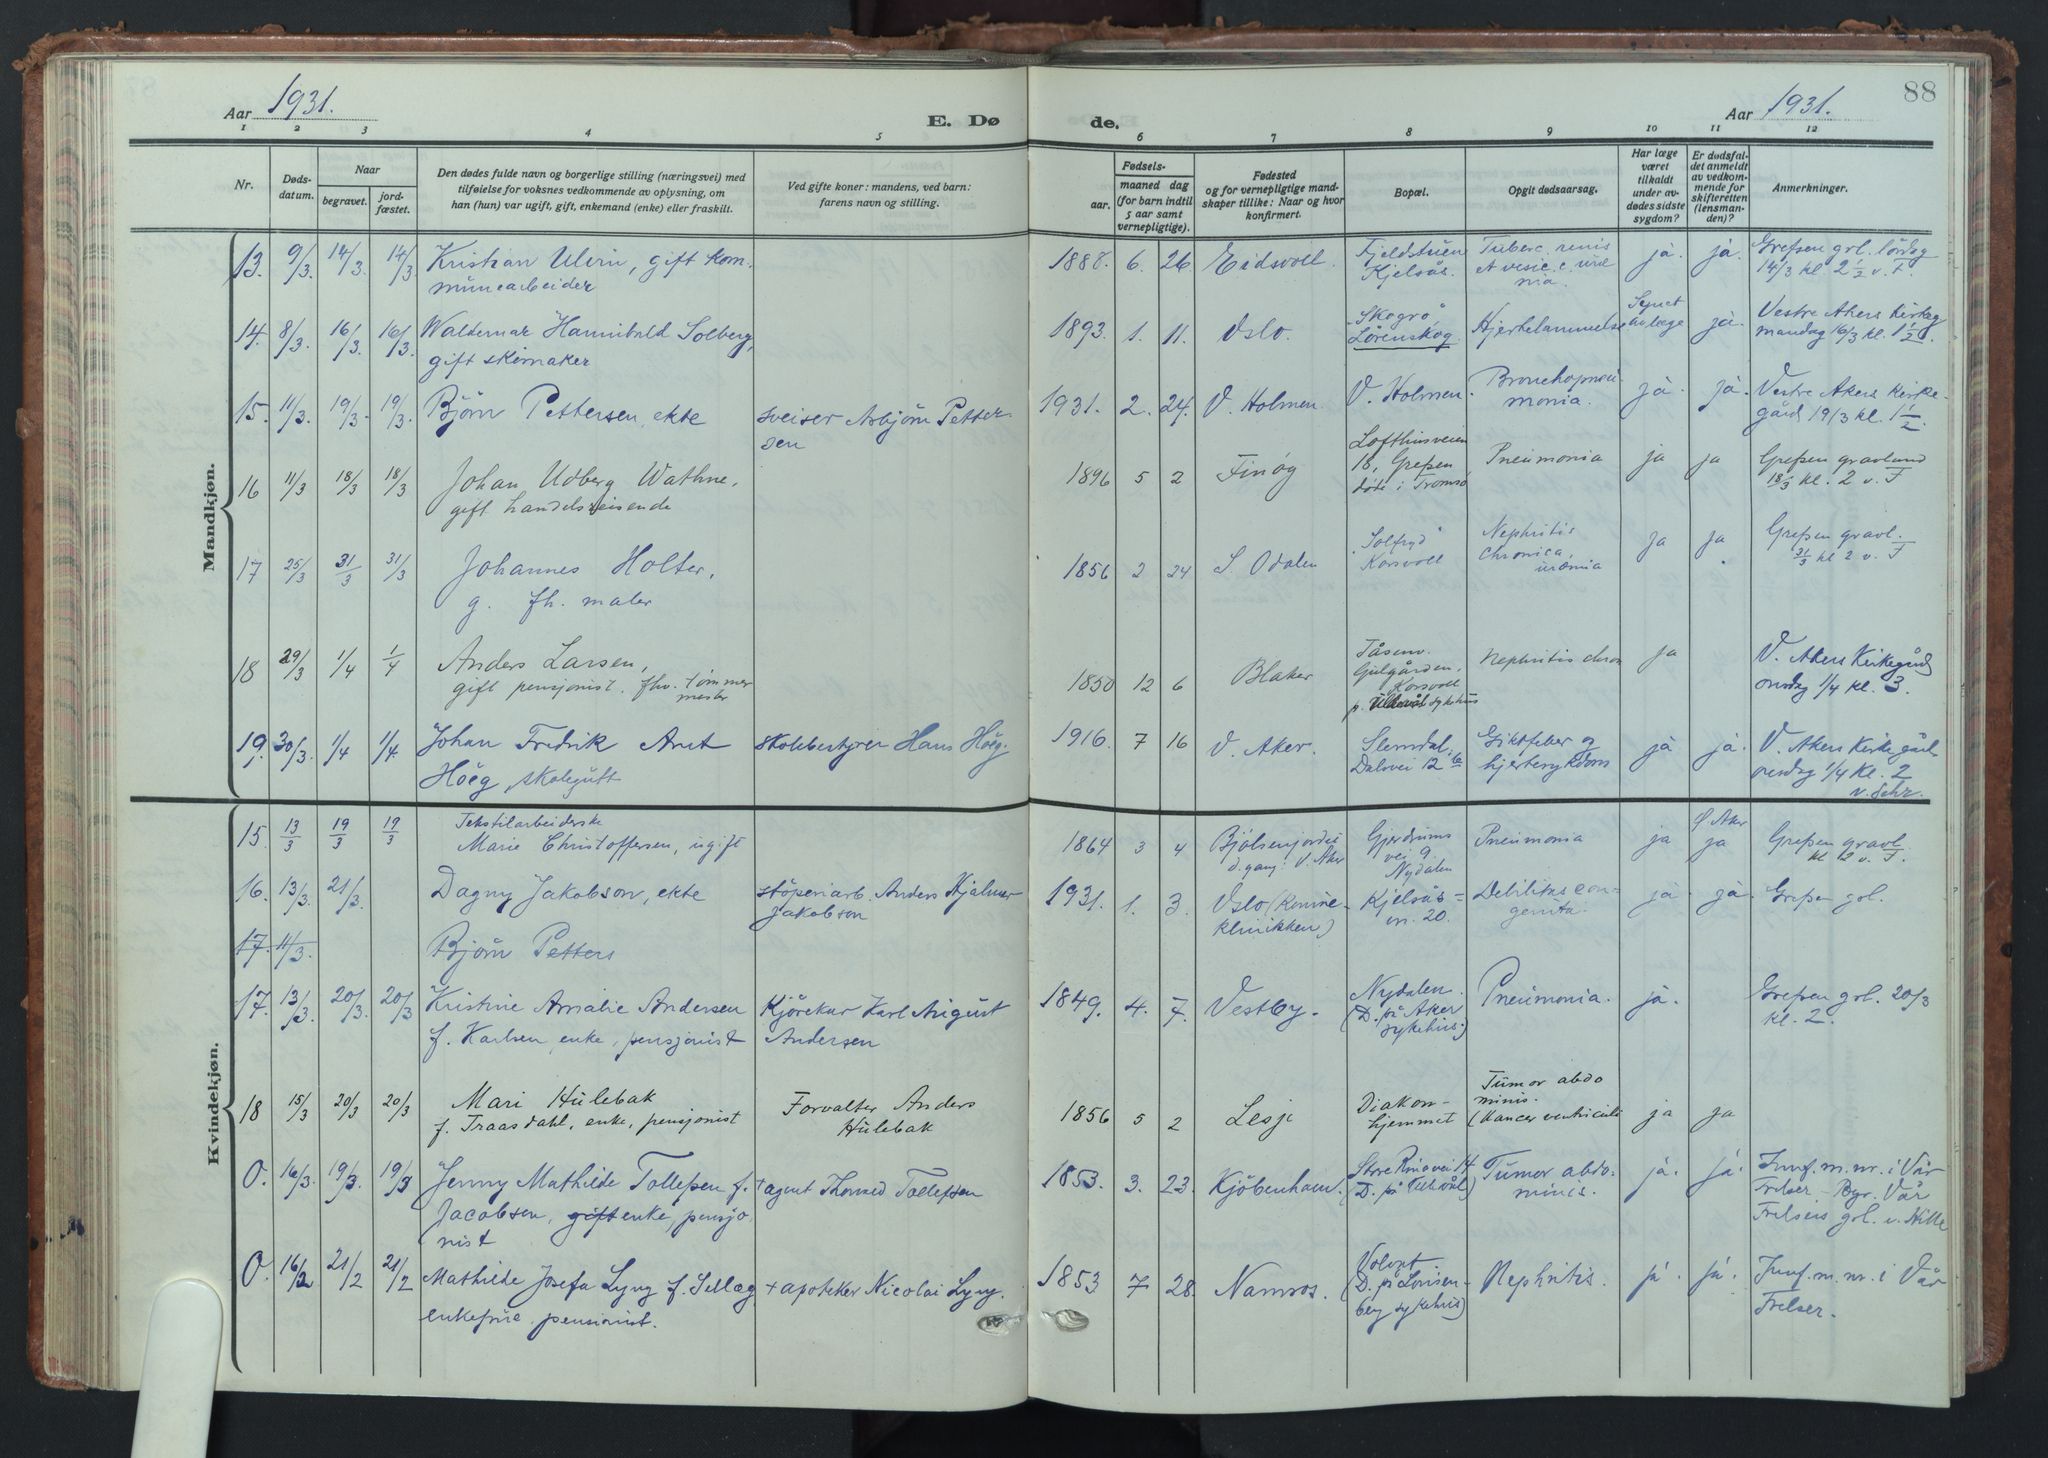 88
Aar 1931.
E. Døde.
Aar 1931.
1 2 3 4 5 6 7 8 9 10 11 12
Nr.
Døds-
datum.
Naar
begravet.
jord-
fæstet.
Den dødes fulde navn og borgerlige stilling (næringsvei) med
tilføielse for voksnes vedkommende av oplysning, om
han (hun) var ugift, gift, enkemand (enke) eller fraskilt.
Ved gifte koner: mandens, ved barn:
farens navn og stilling.
Fødsels-
aar.
maaned dag
(for barn indtil
5 aar samt
vernepligtige).
Fødested
og for vernepligtige mand-
skaper tillike: Naar og hvor
konfirmert.
Bopæl.
Opgit dødsaarsag.
Har læge
været
tilkaldt
under av-
dødes sidste
sygdom?
Er dødsfal-
det anmeldt
av vedkom-
mende for
skifteretten
(lensman-
den)?
Anmerkninger.
Mandkjøn.
13. 9/3 14/3. 14/3 Kristian Ulvin, gift kom-
munearbeider
1888. 6. 26 Eidsvoll.
Fjeldstuen
Kjelsås.
Tuberc. renis
et vesic. c. uræ
mia.
ja. ja.
Grefsen grl. lördag
14/3 kl 2 1/2 v. F.
14. 8/3. 16/3. 16/3. Waldemar Hannibald Solberg,
gift skomaker
1893. 1. 11. Oslo.
Skogro
Lörenskog.
Hjertelammelse
Synet
av læge
ja.
Vestre Akers kirkeg
mandag 16/3 kl. 1 1/2.
15. 11/3. 19/3. 19/3. Björn Pettersen, ekte
sveiser Asbjörn Petter-
sen
1931. 2. 24. V. Holmen. V. Holmen.
Bronchopneu-
monia.
ja. ja.
Vestre Akers kirke-
gård 19/3 kl. 1 1/2.
16 11/3 18/3 18/3 Johan Udberg Wathne,
gift handelsreisende
1896 5 2 Finög
Lofthusveien
18, Grefsen
döde i Tromsö
Pneumonia ja ja
Grefsen gravlund
18/3 kl. 2 v. F
17 25/3 31/3 31/3 Johannes Holter,
g. fh. maler
1856 2 24 S. Odalen
"Solfryd"
Korsvoll
Nephritis
chronica,
uræmia
ja ja
Grefsen gravl.
31/3 kl 2 v. F
18 29/3 1/4 1/4 Anders Larsen,
gift pensjonist. fhv. tömmer
mester
1850 12 6 Blaker
Tåsenv.
Gulgården,
Korsvoll
p. Ullevål sykehus
Nephritis chron ja
V. Akers Kirkegård
onsdag 1/4 kl. 3.
19. 30/3. 1/4 1/4. Johan Fredrik Arnt
Höeg, skolegutt
skolebestyrer Hans Höeg.
1916. 7 16 V. Aker.
Slemdal.
Dalsvei 12 b
Giktfeber og
hjertesykdom
ja ja.
V. Akers Kirkegård
onsdag 1/4 kl. 2
v. Schr.
Kvindekjøn.
15. 13/3 19/3 19/3
Tekstilarbeiderske
Marie Christoffersen, ugift
1864 3 4
Bjölsenjordet
d. gang: V. Aker
Gjerdrums
vei 9
Nydalen
Pneumonia ja
Ø Aker
ja
Grefsen gravl.
kl 12 v. F.
16. 13/3. 21/3. Dagny Jakobson, ekte
stöperiarb. Anders Hjalmar
Jakobson
1931. 1. 3.
Oslo (Kvinne-
klinikken)
Kjelsås-
vn. 20.
Debilitas con-
genita.
ja. ja. Grefsen grl.
17. 11/3. Björn Petters
17. 13/3. 20/3. 20/3 Kristine Amalie Andersen
f. Karlsen, enke, pensjonist
Kjörekar Karl August
Andersen
1849. 4. 7. Vestby.
Nydalen.
(D. på Aker
sykehus.)
Pneumonia. ja.
Grefsen grl. 20/3
kl. 2.
18 15/3 20/3 20/3 Mari Hulebak
f. Traasdahl, enke, pensjonist
Forvalter Anders
Hulebak
1856 5 2 Lesje
Diakon-
hjemmet
Tumor abdo
minis.
(Kancer ventriculi
ja ja
0. 16/3. 19/3. 19/3 Jenny Mathilde Tollefsen f.
Jacobsen, gift enke, pensjo
nist
+ agent Thorvald Tollefsen
1853. 3. 23. Kjöbenhavn.
Store Ringvei 14
(D. på Ullevål)
Tumor abdo-
minis.
ja. ja.
Innf. m. nr. i Vår
Frelser. - Bgr. Vår
Frelsers grl. v. Hille
0. 16/2 21/2 21/2 Mathilde Josefa Lyng f. Sellæg
enkefrue, pensionist.
+ apoteker Nicolai Lyng.
1853 7 28. Namsos.
(D. på Lovisen-
berg sykehus)
Nephritis. ja. ja.
Innf. m. nr. i Vår
Frelser.